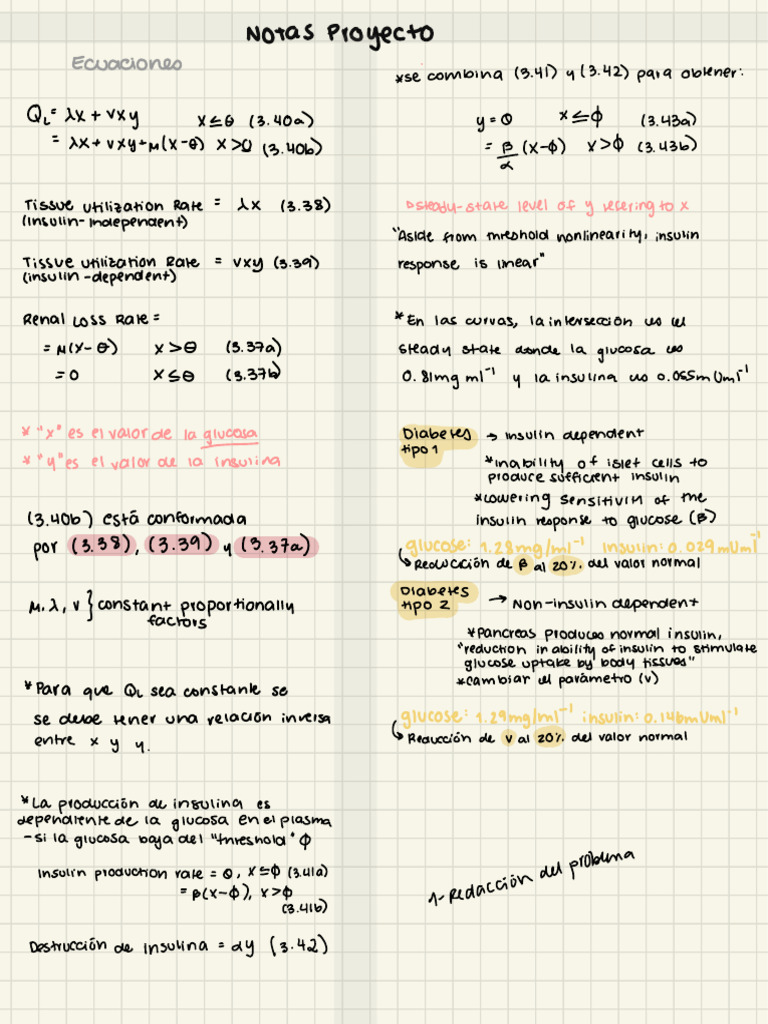 Notas Proyecto
Ecuaciones
QL = λx + νxy x ≤ θ (3.40a)
= λx + νxy + μ(x-θ) x > θ (3.40b)
Tissue utilization Rate = λx (3.38)
(Insulin-Independent)
Tissue utilization Rate = νxy (3.39)
(insulin-dependent)
Renal Loss Rate =
= μ(x-θ) x > θ (3.37a)
= 0 x ≤ θ (3.37b)
* "x" es el valor de la glucosa
* "y" es el valor de la insulina
(3.40b) está conformada
por (3.38), (3.39) y (3.37a)
μ, λ, ν } constant proportionally
factors
* Para que QL sea constante se
se debe tener una relación inversa
entre x y y.
* La producción de insulina es
dependiente de la glucosa en el plasma
- si la glucosa baja del "threshold" ϕ
Insulin production rate = 0, x ≤ ϕ (3.41a)
= β(x-ϕ), x > ϕ
(3.41b)
Destrucción de insulina = αy (3.42)
* se combina (3.41) y (3.42) para obtener:
y = 0 x ≤ ϕ (3.43a)
= β/α (x-ϕ) x > ϕ (3.43b)
▹ steady-state level of y refering to x
"Aside from threshold nonlinearity, insulin
response is linear"
* En las curvas, la intersección es el
steady state donde la glucosa es
0.81mg ml⁻¹ y la insulina es 0.055mUml⁻¹
Diabetes → Insulin dependent
tipo 1
* Inability of islet cells to
produce sufficient insulin
* Lowering sensitivity of the
insulin response to glucose (β)
glucose: 1.28mg/ml⁻¹ insulin: 0.029mUml⁻¹
Reducción de β al 20% del valor normal
Diabetes
tipo 2 → Non-insulin dependent
* Pancreas produces normal insulin,
"reduction in ability of insulin to stimulate
glucose uptake by body tissues"
* Cambiar el parámetro (ν)
glucose: 1.29mg/ml⁻¹ insulin: 0.146mUml⁻¹
Reducción de ν al 20% del valor normal
1- Redacción del problema